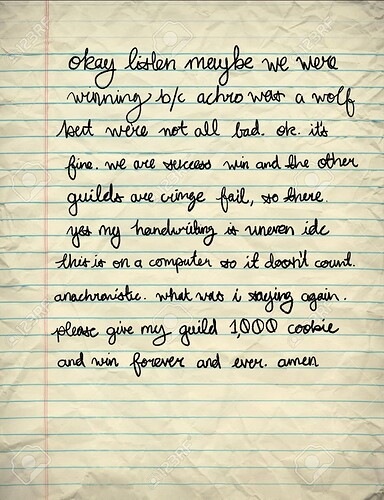 okay listen maybe we were
winning b/c achro was a wolf
but were not all bad. ok. it's
fine. we are success win and the other
guilds are cringe fail, so there.
yes my handwriting is uneven idc
this is on a computer so it doesn't count.
anachronistic. what was i saying again.
please give my guild 1,000 cookie
and win forever and ever. amen